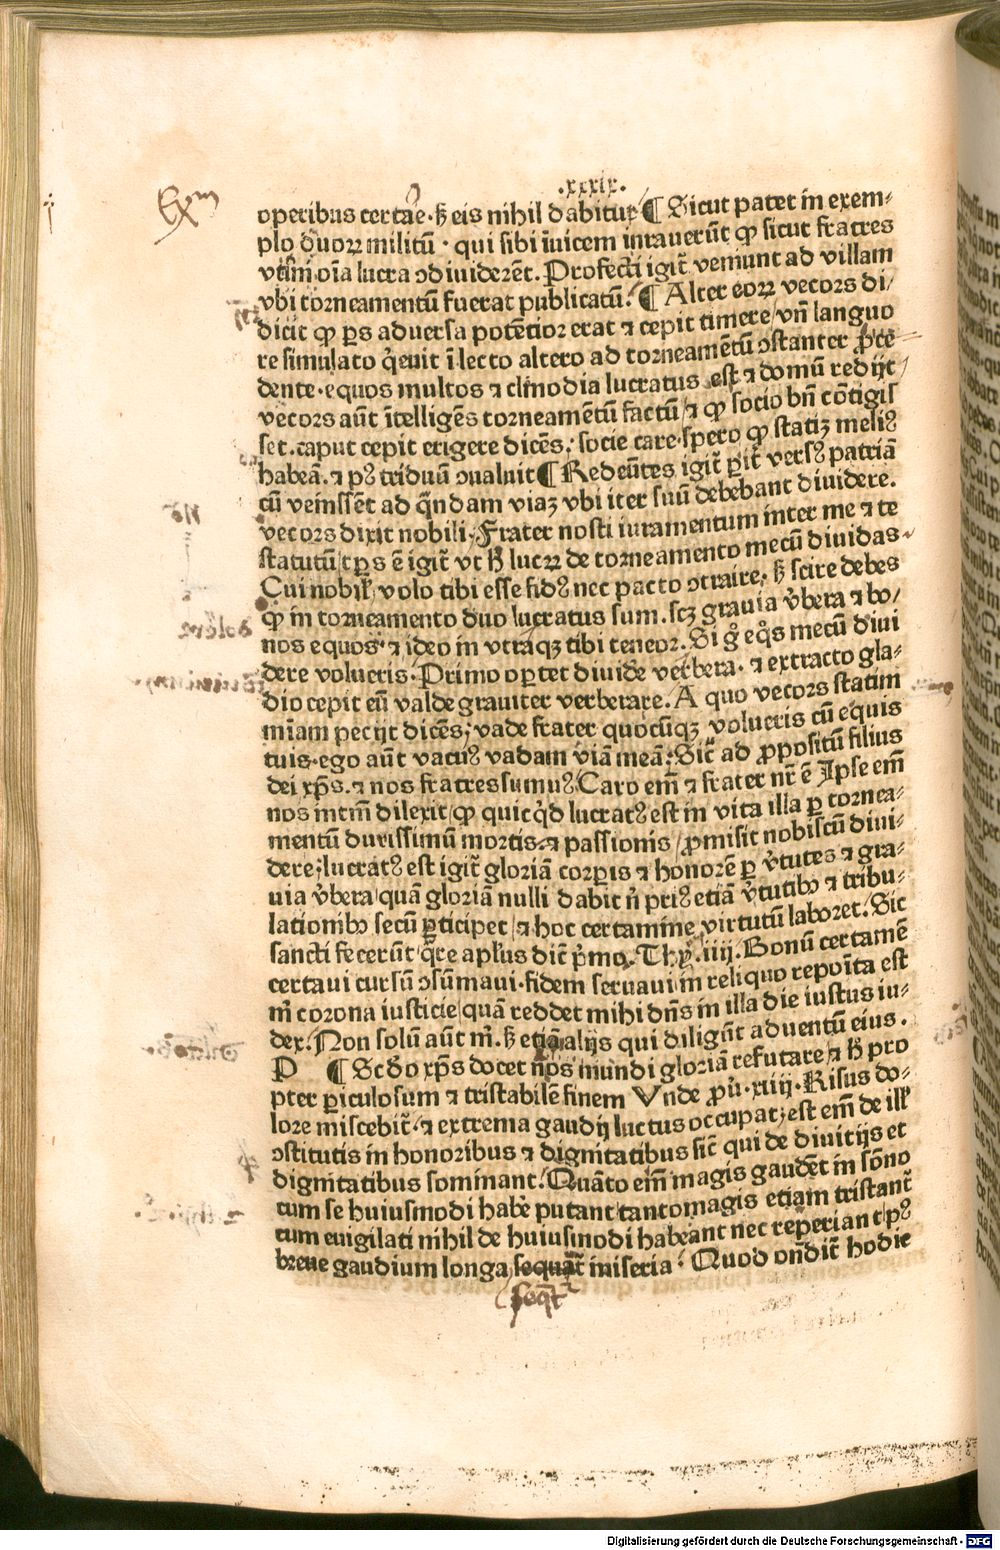 .xxxix.
Exm
operibus certãe. sꝫ eis nihil dabitur ¶ Sicut patet in exem-
plo duoꝝ militũ. qui sibi ĩuicem iurauerũt ꝙ sicut fratres
vtĩm oĩa lucra ↄdiuiderẽt. Profecti igit̃ veniunt ad villam
vbi torneamentũ fuerat publicatũ. ¶ Alter eoꝝ vecors di/
dicit ꝙ ꝑs aduersa potẽtior erat ⁊ cepit timere/ vñ languo
re simulato q̃euit ĩ lecto altero ad torneamẽtũ ↄstanter ꝓce
dente. equos multos ⁊ clĩnodia lucratus est ⁊ domũ redijt/
vecors aũt ĩtelligẽs torneamẽtũ factũ/ ⁊ ꝙ socio bñ cõtigis
set. caput cepit erigere dicẽs: socie care. spero ꝙ statiꝫ meliꝰ
habeã. ⁊ pꝰ triduũ ↄualuit ¶ Redeũtes igit̃ ꝑit̃ versꝰ patriã
cũ venissẽt ad q̃ndam viaꝫ vbi iter suũ debebant diuidere.
vecors dixit nobili. Frater nosti iuramentum inter me ⁊ te
statutũ/ tꝑs ẽ igit̃ vt hͦ lucꝝ de torneamento mecũ diuidas.
Cui nobil̃ volo tibi esse fidꝰ nec pacto ↄtraire. sꝫ scire debes
ꝙ in torneamento duo lucratus sum. scꝫ grauia v̓bera ⁊ bo/
nos equos ⁊ ideo in vtraqꝫ tibi teneor. Si g̊ eq̊s mecũ diui
dere volueris. Primo oportet diuidẽ verbera. ⁊ extracto gla-
dio cepit eũ valde grauiter verberare. A quo vecors statim
mĩam pecijt dicẽs; vade frater quocũqꝫ volueris cũ equis
tuis. ego aũt vacuꝰ vadam viã meã: Sic̃ ad ꝓpositũ filius
dei xp̃s. ⁊ nos fratres sumuꝰ/ Caro em̃ ⁊ frater nr̃ ẽ Ipse em̃
nos ĩntm̃ dilexit/ ꝙ quicq̇d lucratꝰ est in vita illa ꝑ tornea-
mentũ durissimũ mortis. ⁊ passionis/ ꝓmisit nobiscũ diui-
dere; lucratꝰ est igit̃ gloriã corꝑis ⁊ honorẽ ꝑ v̓tutes ⁊ gra-
uia v̓bera/ quã gloriã nulli dabit ñ priꝰ etiã v̓tutibꝫ ⁊ tribu-
lationibꝫ secũ ꝑticipet/ ⁊ hoc certamine virtutũ laboret. Sic
sancti fecerũt/ q̃re apl̃us dic̃ p̓mo. Thỹ. iiij. Bonũ certamẽ
certaui cursũ ↄsũmaui. fidem seruaui in reliquo repoĩta est
m̃ corona iusticie/ quã reddet mihi dñs in illa die iustus iu-
dex. Non solũ aũt m̃. sꝫ etiã alijs qui diligũt aduentũ eius.
P ¶ Scd̃o xp̃s docet nos mũdi gloriã refutare/ ⁊ hͦ pro
pter ꝑiculosum ⁊ tristabilẽ finem Vnde ꝓũ. xiiij. Risus do-
lore miscebit̃. ⁊ extrema gaudij luctus occupat; est em̃ de ill̃
ↄstitutis in honoribus ⁊ dignitatibus sic̃ qui de diuitijs et
dignitatibus somniant. Quãto em̃ magis gaudẽt in sõno
cum se huiusmodi habẽ putant/ tantomagis etiam tristant̃
cum euigilati nihil de huiusmodi habeant nec reperiant/ pꝰ
breue gaudium longa sequãt̃ miseria. Quod oñdit̃ hodie
seq̃t̃
Digitalisierung gefördert durch die Deutsche Forschungsgemeinschaft - DFG